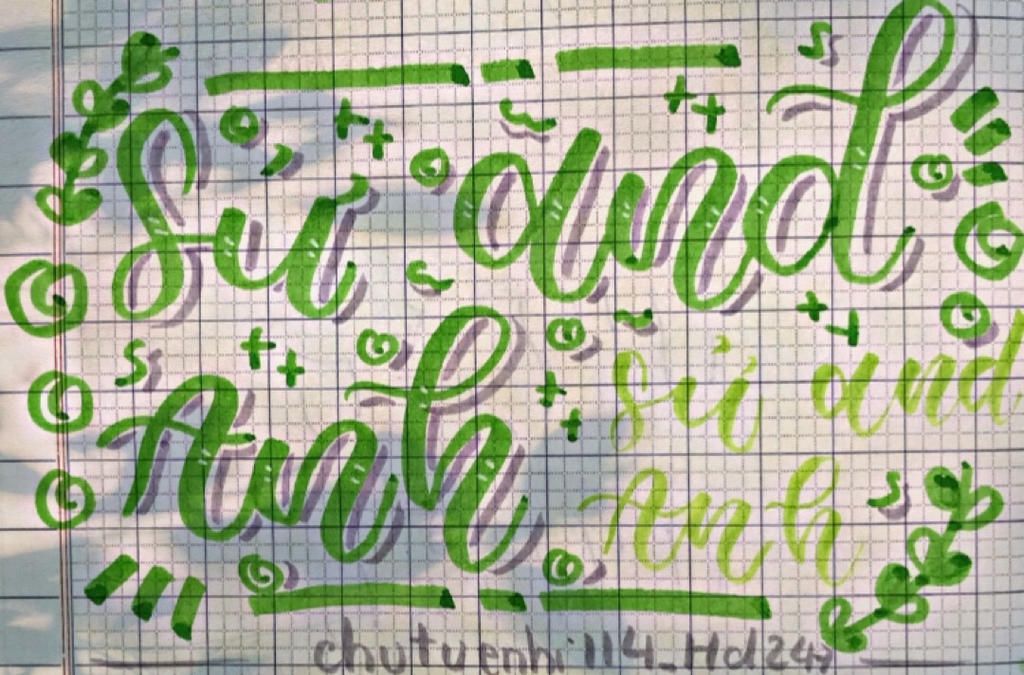 Sú and
Anh
sú and
Anh
chutuenhi114_Hd247